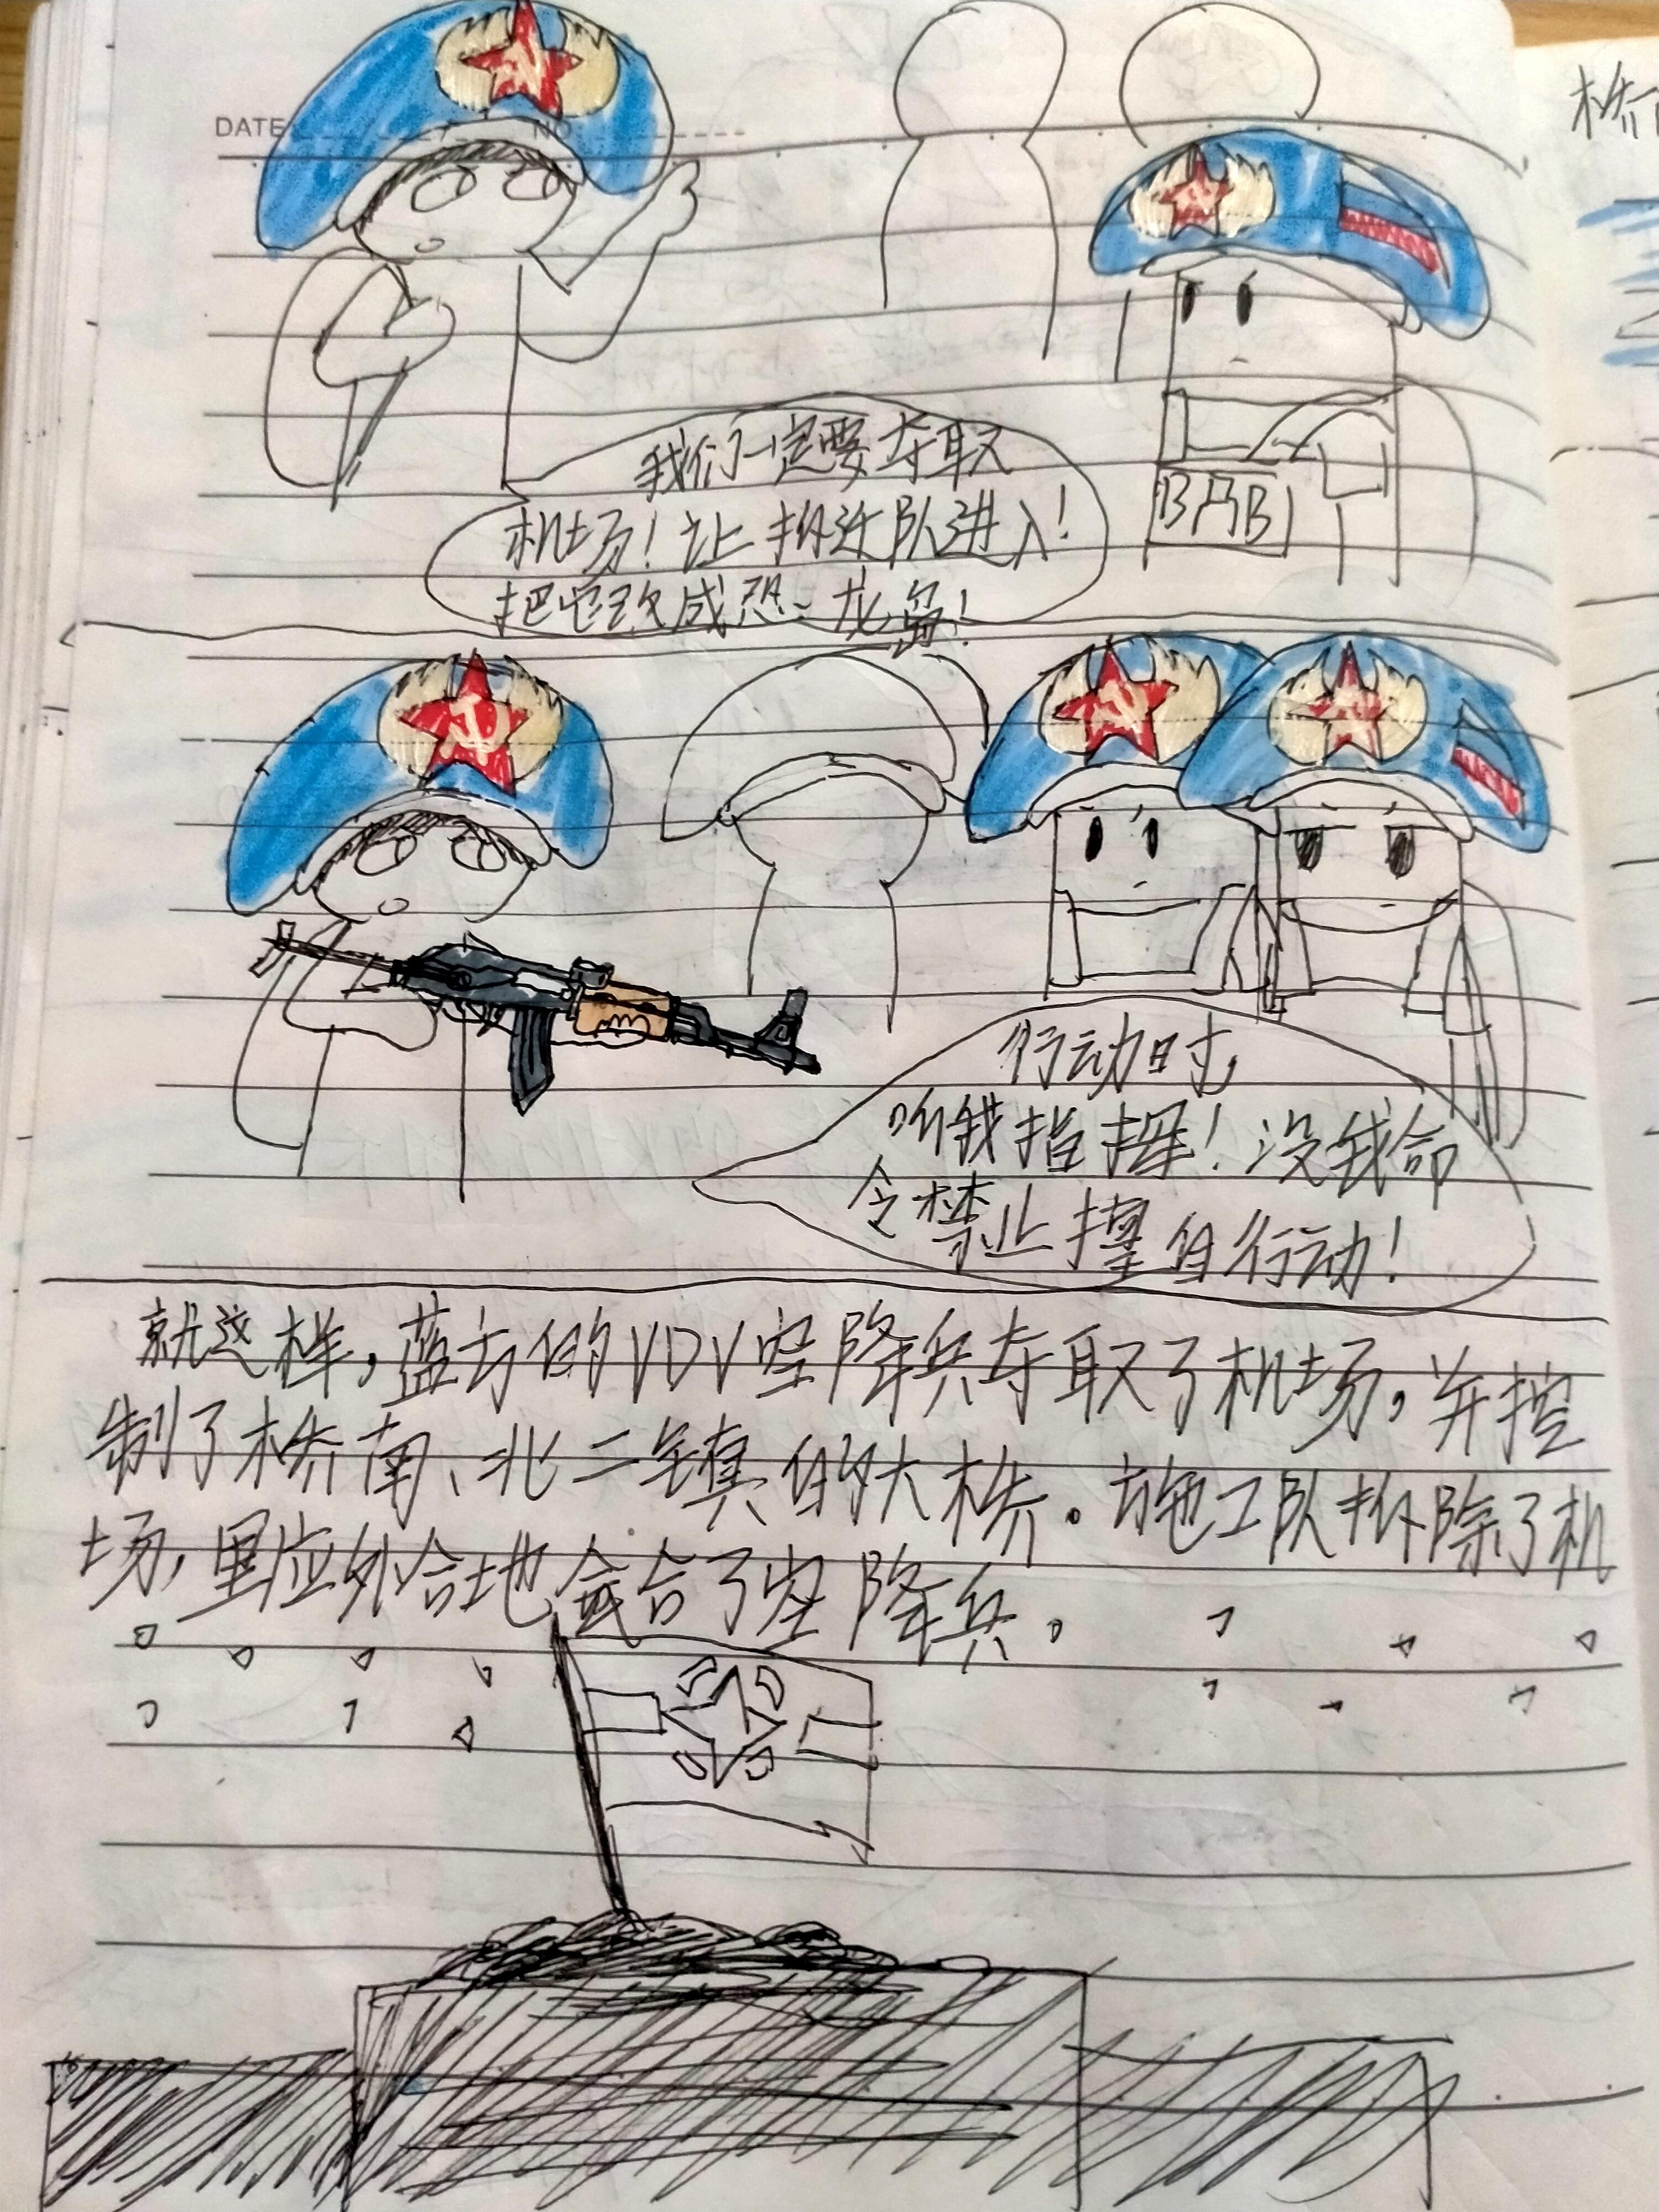 DATE NO.
桥
我们一定要夺取
机场！让拆迁队进入！
把它改成恐龙岛！
BAB
行动时，
听我指挥！没我命
令禁止擅自行动！
就这样，蓝方的VDV空降兵夺取了机场，并控
制了桥南、北二镇的大桥。施工队拆除了机
场，里应外合地会合了空降兵。